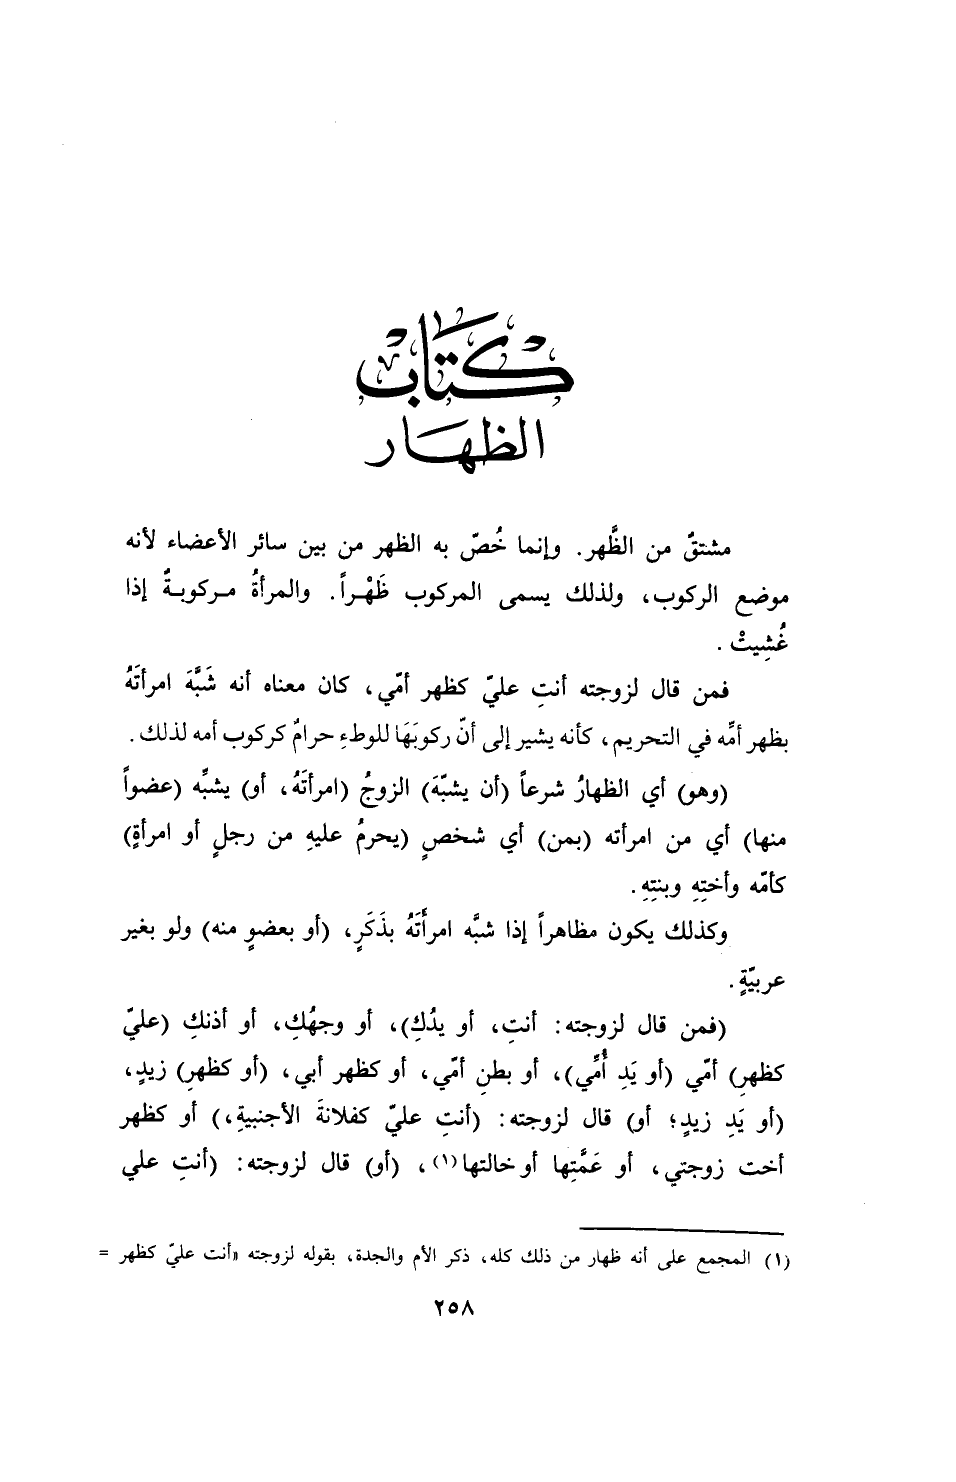 كتاب
الظهار
مشتقٌ من الظَّهر. وإنما خُصّ به الظهر من بين سائر الأعضاء لأنه
موضع الركوب، ولذلك يسمى المركوب ظَهْراً. والمرأةُ مركوبةٌ إذا
غُشِيتْ.
فمن قال لزوجته أنتِ عليّ كظهر أمّي، كان معناه أنه شَبَّهَ امرأتَهُ
بظهر أمِّه في التحريم، كأنه يشير إلى أنّ ركوبَهَا للوطءِ حرامٌ كركوب أمه لذلك.
(وهو) أي الظهارُ شرعاً (أن يشبّهَ) الزوجُ (امرأتَهُ، أو) يشبِّه (عضواً
منها) أي من امرأته (بمن) أي شخصٍ (يحرمُ عليهِ من رجلٍ أو امرأةٍ)
كأمّه وأختِهِ وبنتِهِ.
وكذلك يكون مظاهراً إذا شبَّه امرأتَهُ بذَكَرٍ، (أو بعضوٍ منه) ولو بغير
عربيّةٍ.
(فمن قال لزوجته: أنتِ، أو يدُكِ)، أو وجهُكِ، أو أذنكِ (عليّ
كظهرِ) أمّي (أو يَدِ أُمِّي)، أو بطنِ أمّي، أو كظهر أبي، (أو كظهرِ) زيدٍ،
(أو يَدِ زيدٍ؛ أو) قال لزوجته: (أنتِ عليّ كفلانةَ الأجنبيةِ،) أو كظهر
أخت زوجتي، أو عَمَّتِها أو خالتها(١)، (أو) قال لزوجته: (أنتِ علي
(١) المجمع على أنه ظهار من ذلك كله، ذكر الأم والجدة، بقوله لزوجته «أنت عليّ كظهر =
٢٥٨